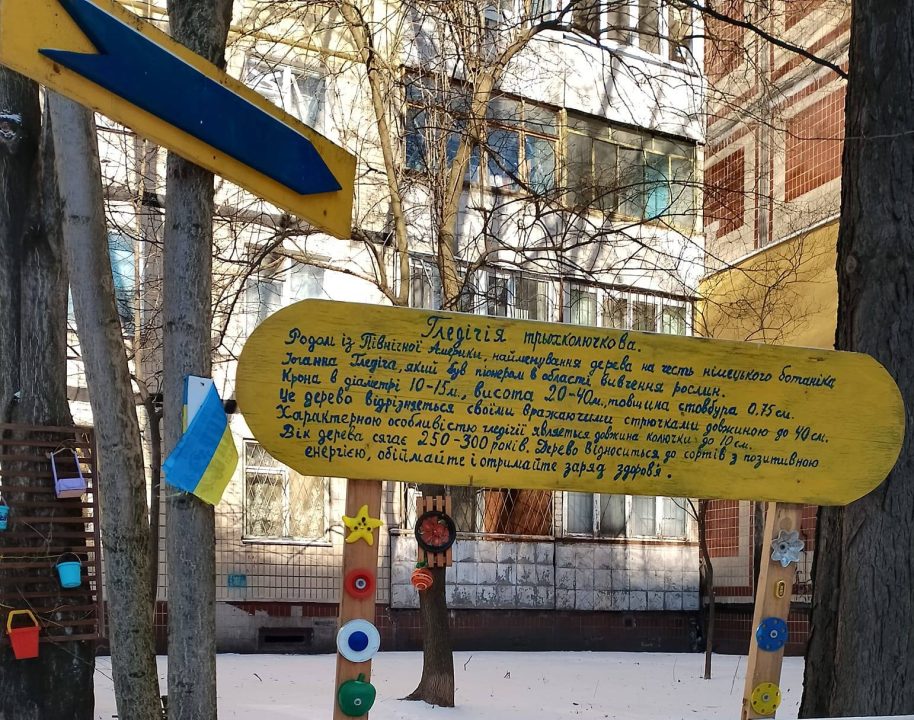 Гледічія трьхколючкова.
Родом із Північної Америки, найменування дерева на честь німецького ботаніка
Іоганна Гледіча, який був піонером в області вивчення рослин.
Крона в діаметрі 10-15м., висота 20-40м, товщина стовбура 0,75 см.
Це дерево відрізняється своїми вражаючими стручками довжиною до 40 см.
Характерною особливістю гледічії является довжина колючки до 10 см.
Вік дерева сягає 250-300 років. Дерево відноситься до сортів з позитивною
енергією, обіймайте і отримайте заряд здоров'я.